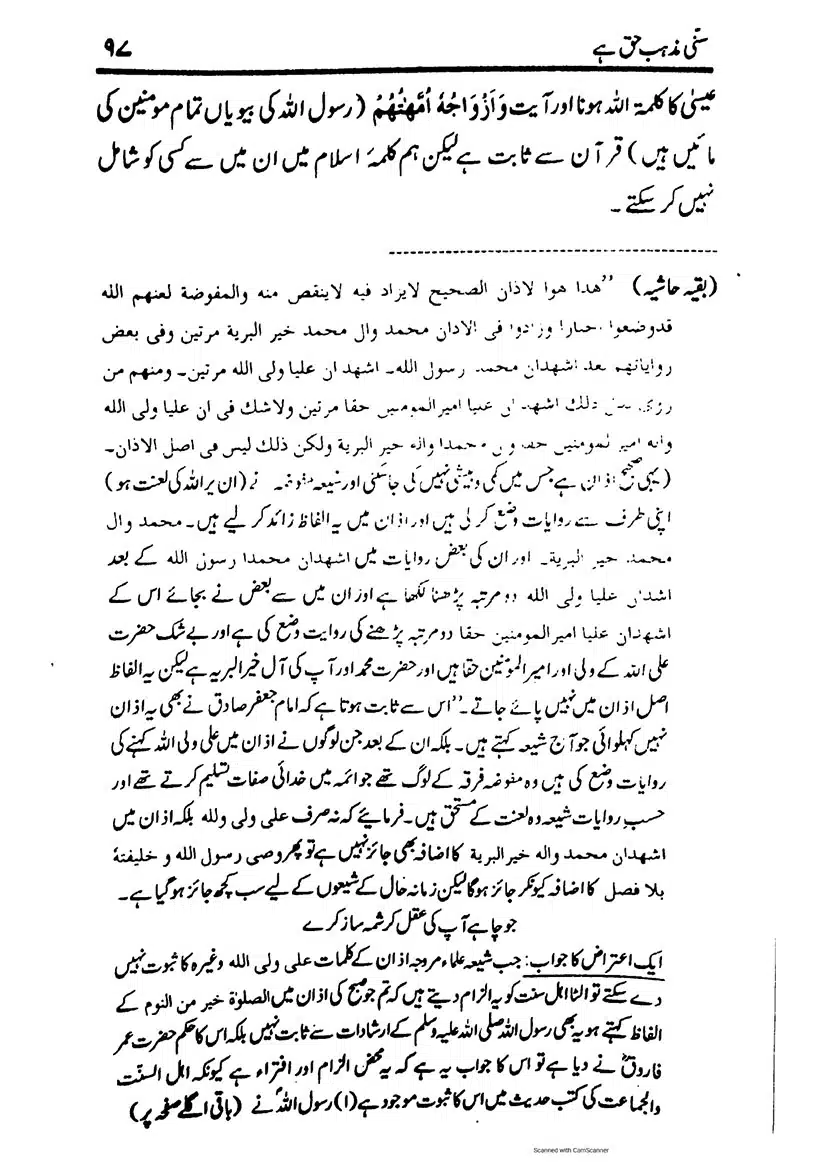 سنی مذہب حق ہے
۹۷
عیسیٰ کا کلمۃ اللہ ہونا اور آیت وَاَزْوَاجُهٗ اُمَّهٰتُهُمْ (رسول اللہ کی بیویاں تمام مومنین کی
مائیں ہیں) قرآن سے ثابت ہے لیکن ہم کلمۂ اسلام میں ان میں سے کسی کو شامل
نہیں کر سکتے ۔
(بقیہ حاشیہ) ’’هدا هوا لاذان الصحيح لايزاد فيه لاينقص منه والمفوضة لعنهم الله
قدوضعوا وزادوا فى الاذان محمد وال محمد خير البرية مرتين وفى بعض
رواياتهم بعد اشهدان محمد رسول الله۔ اشهد ان عليا ولى الله مرتين۔ ومنهم من
ذلك اشهد ان عليا امير المومنين حقا مرتين ولاشك فى ان عليا ولى الله
وانه امير المومنين حقا وان محمدا واله خير البرية ولكن ذلك ليس فى اصل الاذان۔
(یہی صحیح اذان ہے جس میں کمی و بیشی نہیں کی جا سکتی اور شیعہ مفوضہ نے (ان پر اللہ کی لعنت ہو)
اپنی طرف سے روایات وضع کر لی ہیں اور اذان میں یہ الفاظ زائد کر لیے ہیں۔ محمد وال
محمد خير البرية۔ اور ان کی بعض روایات میں اشهدان محمدا رسول الله کے بعد
اشهدان عليا ولى الله دو مرتبہ پڑھنا لکھا ہے اور ان میں سے بعض نے بجائے اس کے
اشهدان عليا امير المومنين حقا دو مرتبہ پڑھنے کی روایت وضع کی ہے اور بے شک حضرت
علی اللہ کے ولی اور امیر المومنین حقا ہیں اور حضرت محمد اور آپ کی آل خیر البریہ ہے لیکن یہ الفاظ
اصل اذان میں نہیں پائے جاتے ۔‘‘ اس سے ثابت ہوتا ہے کہ امام جعفر صادق نے بھی یہ اذان
نہیں کہلوائی جو آج شیعہ کہتے ہیں۔ بلکہ ان کے بعد جن لوگوں نے اذان میں علی ولی اللہ کہنے کی
روایات وضع کی ہیں وہ مفوضہ فرقہ کے لوگ تھے جو ائمہ میں خدائی صفات تسلیم کرتے تھے اور
حسب روایات شیعہ وہ لعنت کے مستحق ہیں۔ فرمایئے کہ نہ صرف علی ولی ولله بلکہ اذان میں
اشهدان محمد واله خير البرية کا اضافہ بھی جائز نہیں ہے تو پھر وصی رسول الله و خليفتهٔ
بلا فصل کا اضافہ کیونکر جائز ہوگا لیکن زمانہ حال کے شیعوں کے لیے سب کچھ جائز ہو گیا ہے۔
جو چاہے آپ کی عقل کرشمہ ساز کرے
ایک اعتراض کا جواب: جب شیعہ علماء مروجہ اذان کے کلمات علی ولی الله وغیرہ کا ثبوت نہیں
دے سکتے تو الٹا اہل سنت کو یہ الزام دیتے ہیں کہ تم جو صبح کی اذان میں الصلوٰة خير من النوم کے
الفاظ کہتے ہو یہ بھی رسول اللہ صلی اللہ علیہ وسلم کے ارشادات سے ثابت نہیں بلکہ اس کا حکم حضرت عمر
فاروقؓ نے دیا ہے تو اس کا جواب یہ ہے کہ یہ محض الزام اور افتراء ہے کیونکہ اہل السنّت
والجماعت کی کتب حدیث میں اس کا ثبوت موجود ہے (۱) رسول اللہؐ نے (باقی اگلے صفحہ پر)
Scanned with CamScanner